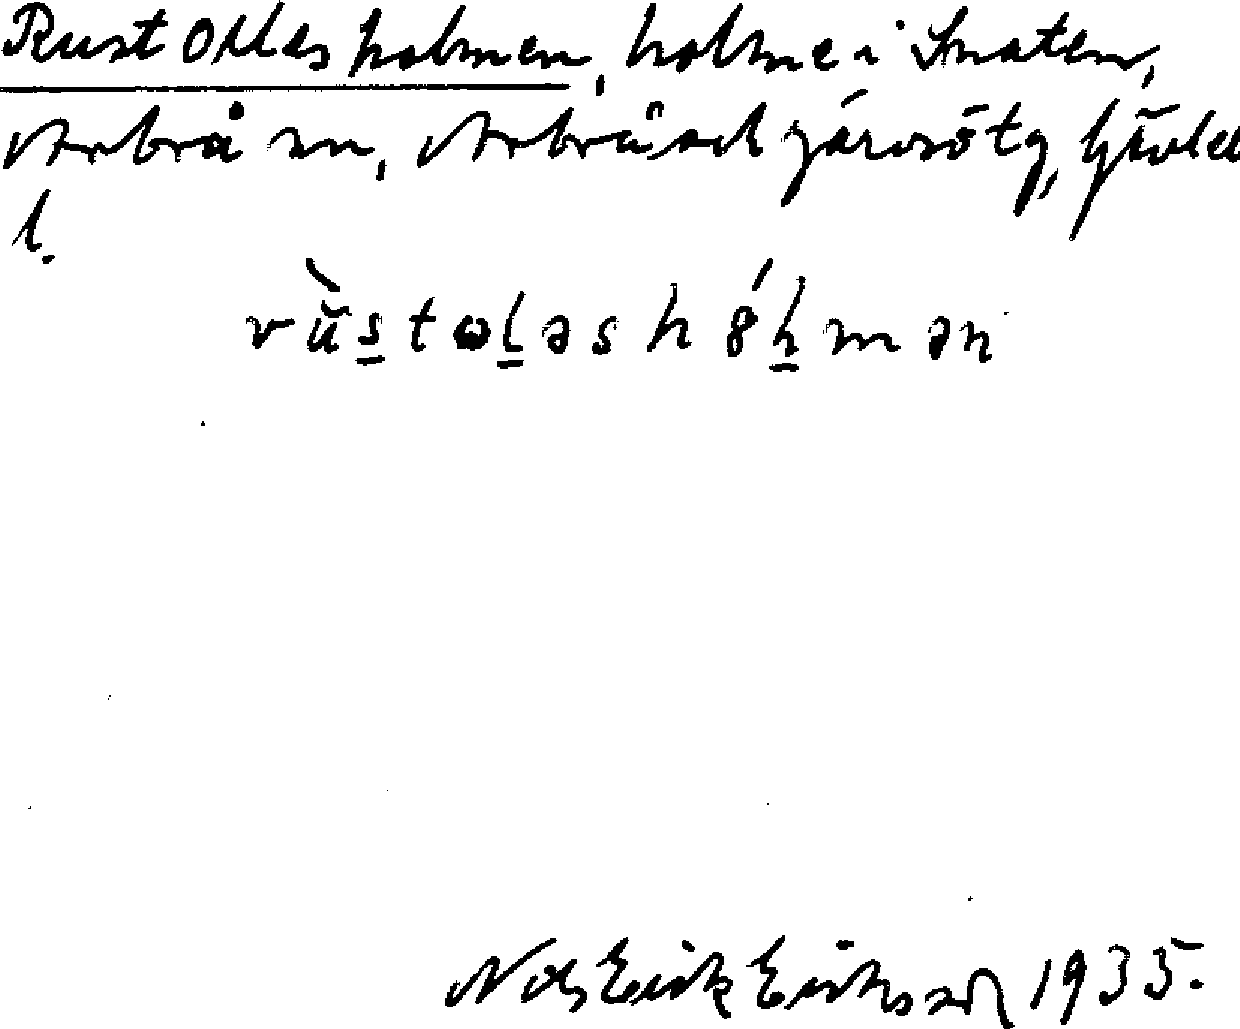 Rust Olles holmen, holme i Snaten,
Arbrå sn, Arbrå och Järvsö tg, Gävleb
l.
vùstωləshólmən
Nils Erik Eriksson 1935.